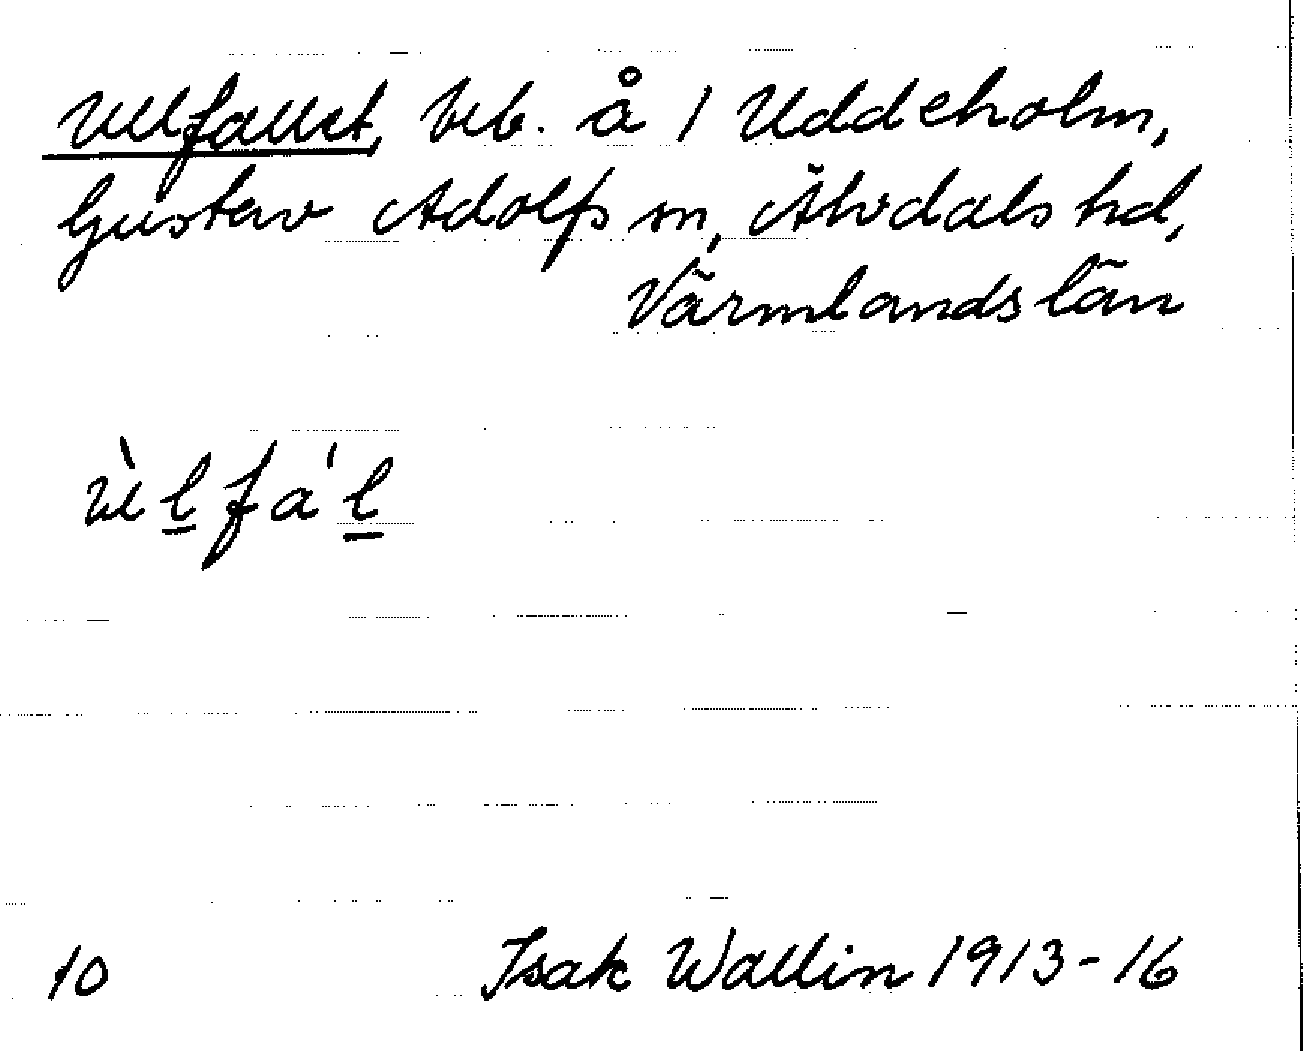 Villfallet, beb. å 1 Uddeholm,
Gustav Adolfs sn, Älvdals hd,
Värmlands län
vìl̲fa'l̲
10 Isak Wallin 1913-16